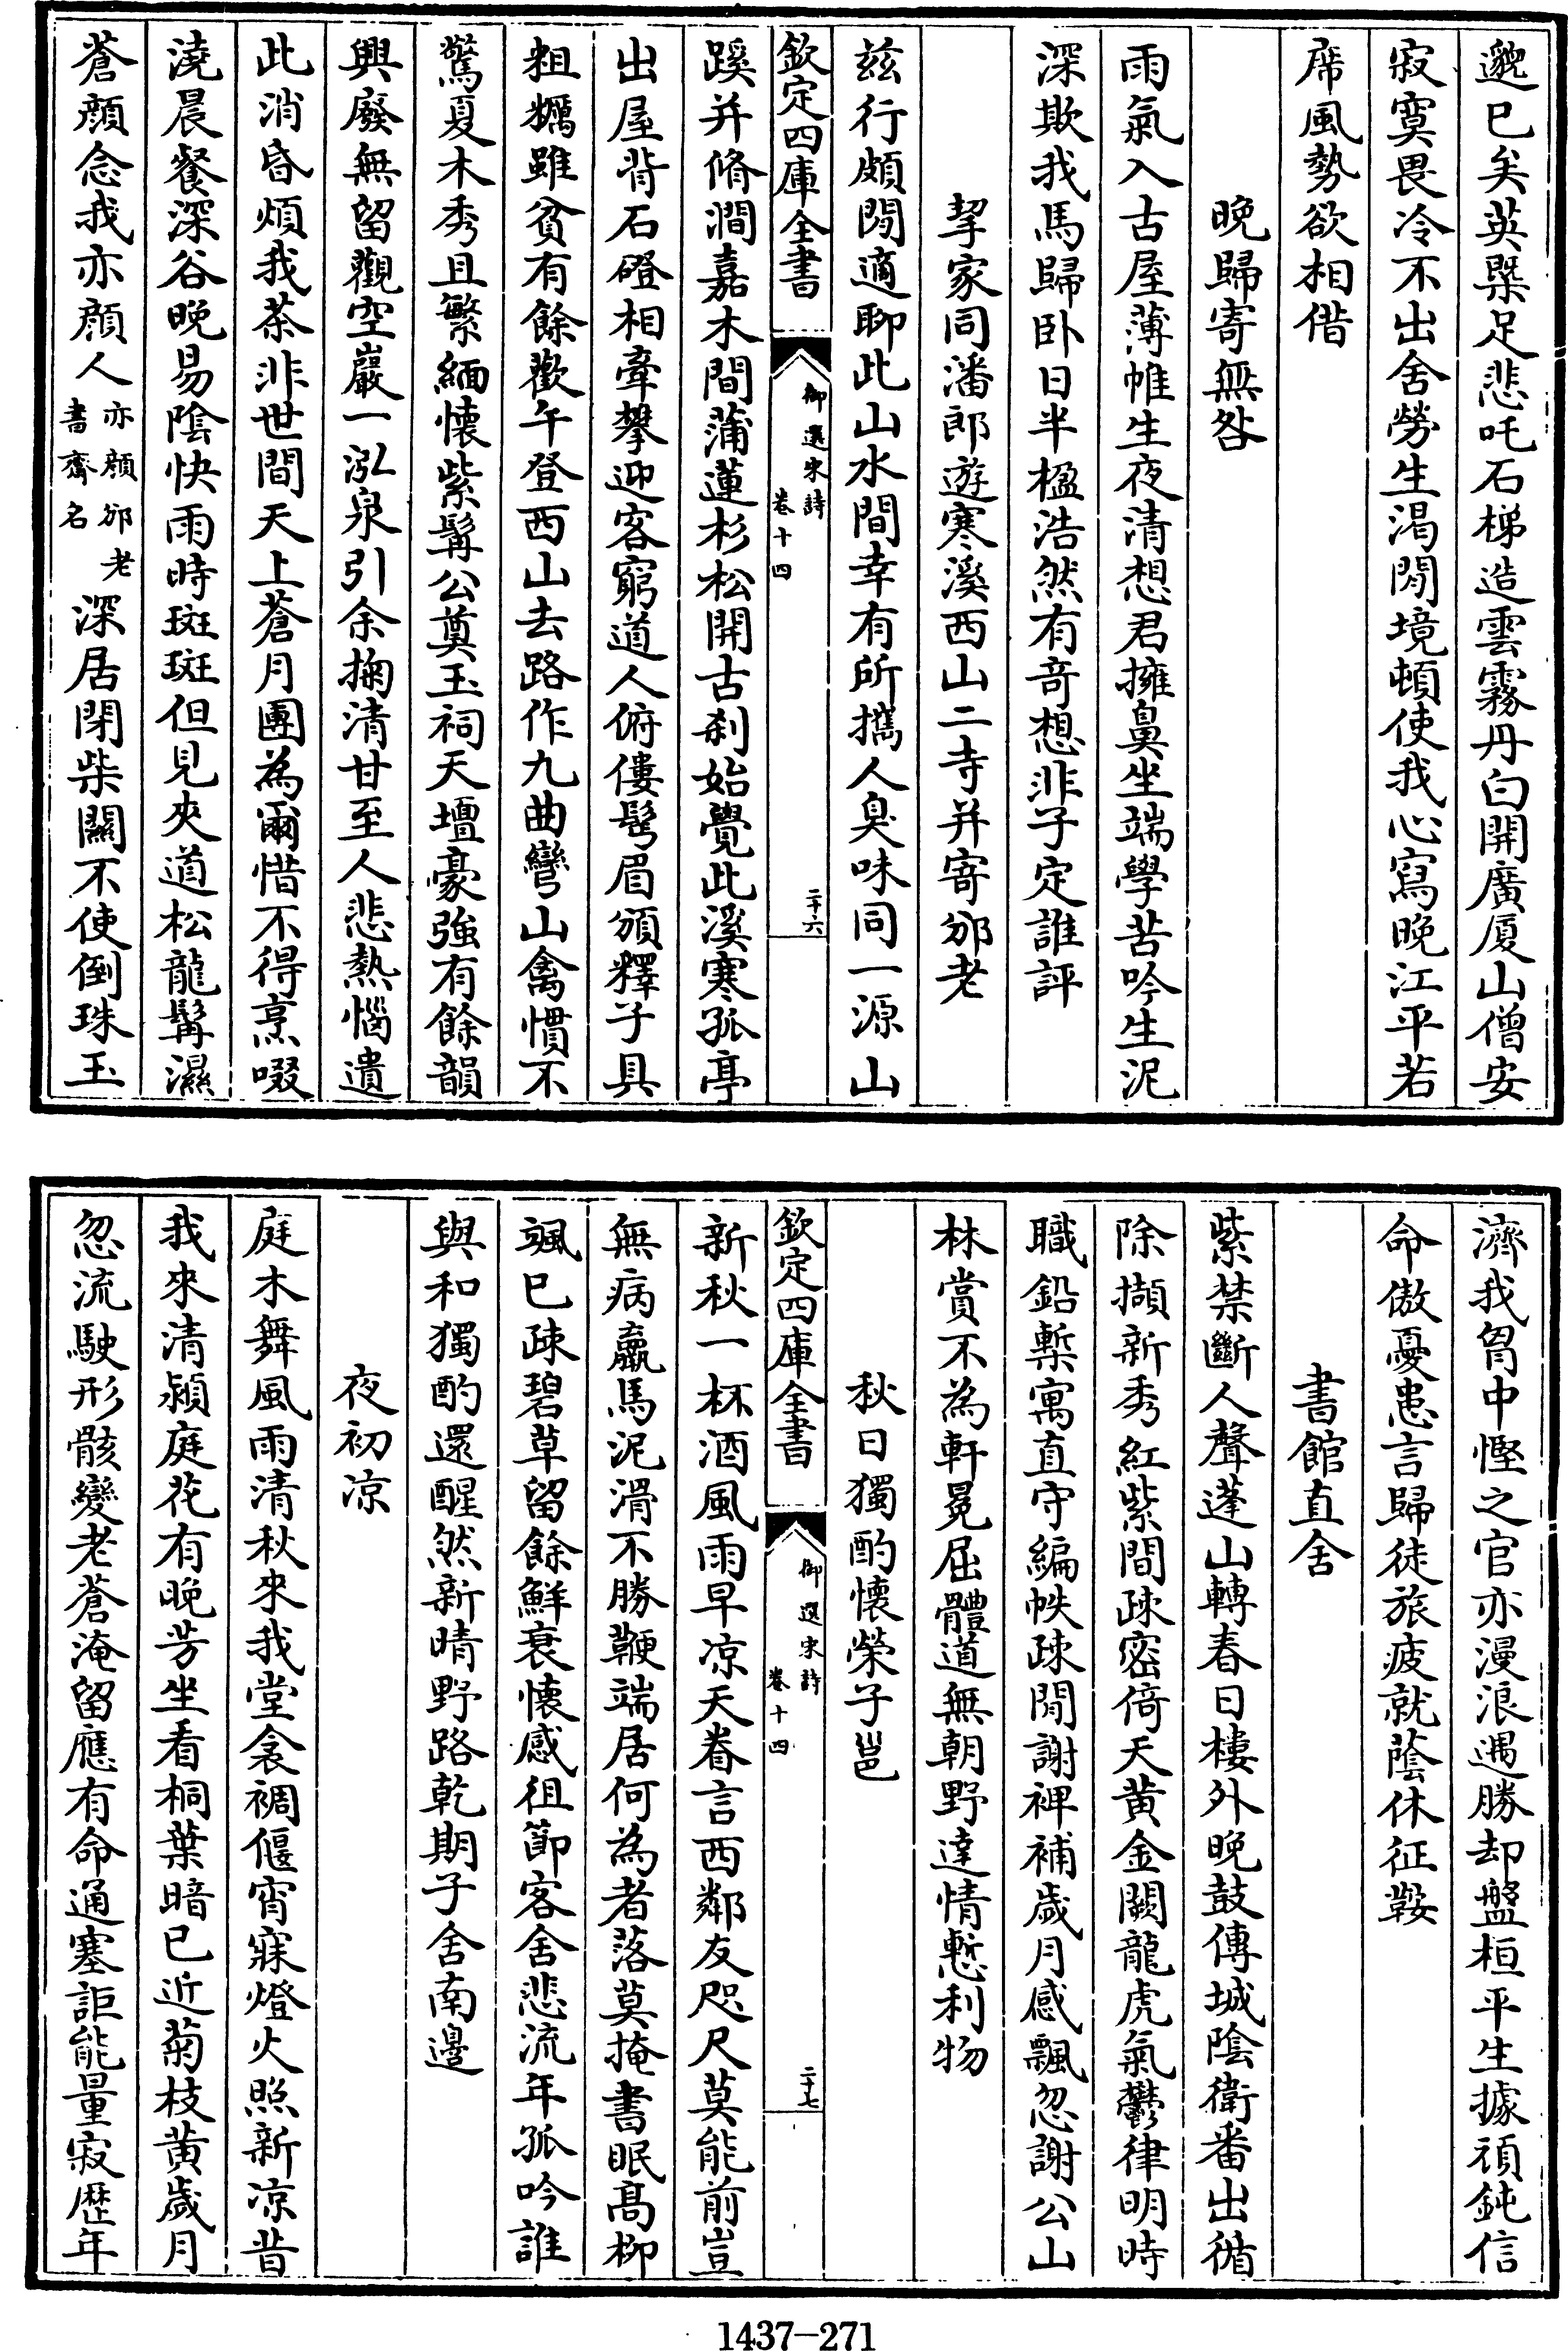 邈已矣英槩足悲吒石梯造雲霧丹白開廣厦山僧安
寂寞畏冷不出舍勞生渴閒境頓使我心寫晚江平若
席風勢欲相借
晚歸寄無咎
雨氣入古屋薄帷生夜清想君擁鼻坐端學苦吟生泥
深欺我馬歸卧日半楹浩然有竒想非子定誰評
挈家同潘郎遊寒溪西山二寺并寄邠老
兹行頗閑適聊此山水間幸有所擕人臭味同一源山
欽定四庫全書
御選宋詩
卷十四
二十六
蹊并脩澗嘉木間蒲蓮杉松開古刹始覺此溪寒孤亭
出屋背石磴相牽攀迎客窮道人俯僂髩眉頒釋子具
粗糲雖貧有餘歡午登西山去路作九曲彎山禽慣不
驚夏木秀且繁緬懷紫髯公奠玉祠天壇豪強有餘韻
興廢無留觀空巖一泓泉引余掬清甘至人悲熱惱遺
此消昏煩我茶非世間天上蒼月團為爾惜不得烹啜
澆晨餐深谷晚易陰快雨時斑斑但見夾道松龍髯濕
蒼顔念我亦顔人亦顔邠老書齋名深居閉柴關不使倒珠玉
濟我胷中慳之官亦漫浪遇勝却盤桓平生據頑鈍信
命傲憂患言歸徒旅疲就蔭休征鞍
書館直舍
紫禁斷人聲蓬山轉春日樓外晚鼓傳城隂衛番出循
除擷新秀紅紫間疎密倚天黄金闕龍虎氣鬱律明時
職鉛槧寓直守編帙疎閒謝禆補歲月感飄忽謝公山
林賞不為軒冕屈體道無朝野達情慙利物
秋日獨酌懷榮子邕
欽定四庫全書
御選宋詩
卷十四
二十七
新秋一杯酒風雨早凉天眷言西鄰友咫尺莫能前豈
無病羸馬泥滑不勝鞭端居何為者落莫掩書眠髙柳
颯已疎碧草留餘鮮衰懷感徂節客舍悲流年孤吟誰
與和獨酌還醒然新晴野路乾期子舍南邊
夜初凉
庭木舞風雨清秋來我堂衾裯偃宵寐燈火照新凉昔
我來清潁庭花有晚芳坐看桐葉暗已近菊枝黄歲月
忽流駛形骸變老蒼淹留應有命通塞詎能量寂歴年
1437-271